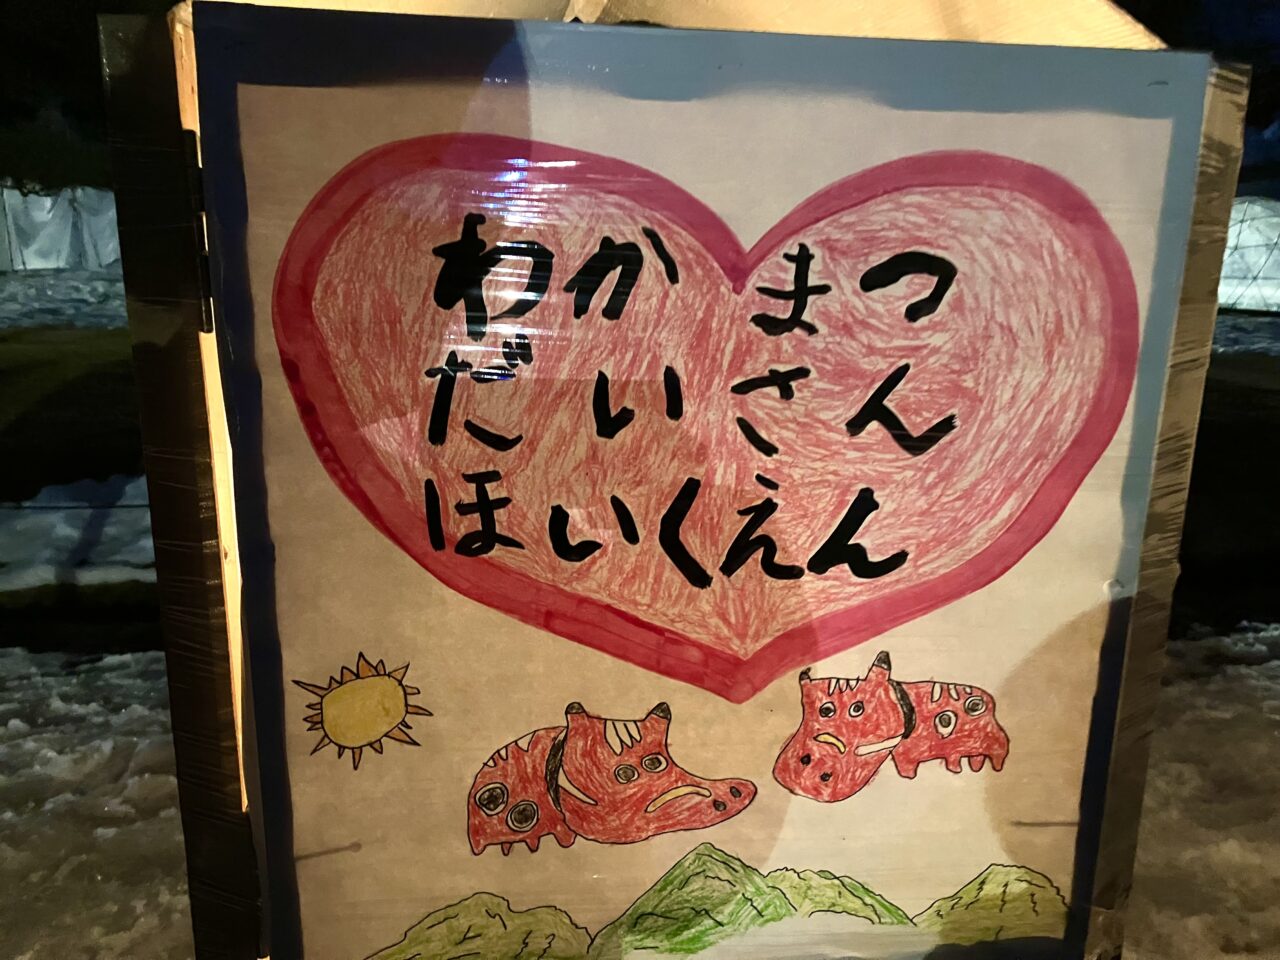 わかまつ
だいさん
ほいくえん